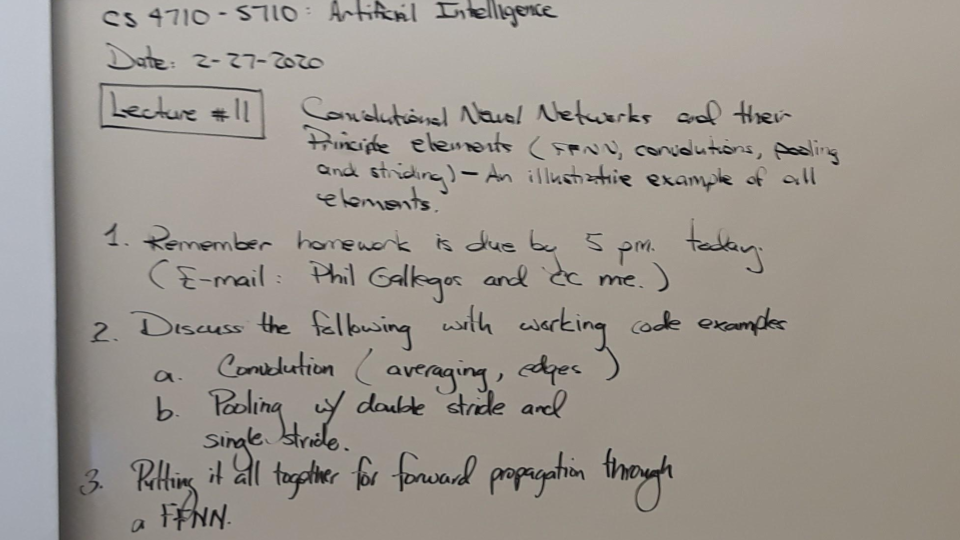 CS 4710 - 5710: Artificial Intelligence
Date: 2-27-2020
Lecture #11 Convolutional Neural Networks and their
Principle elements (FFNN, convolutions, pooling
and striding) - An illustrative example of all
elements.
1. Remember homework is due by 5 pm. today.
(E-mail: Phil Gallegos and cc me.)
2. Discuss the following with working code examples
a. Convolution (averaging, edges)
b. Pooling w/ double stride and
single stride.
3. Putting it all together for forward propagation through
a FFNN.